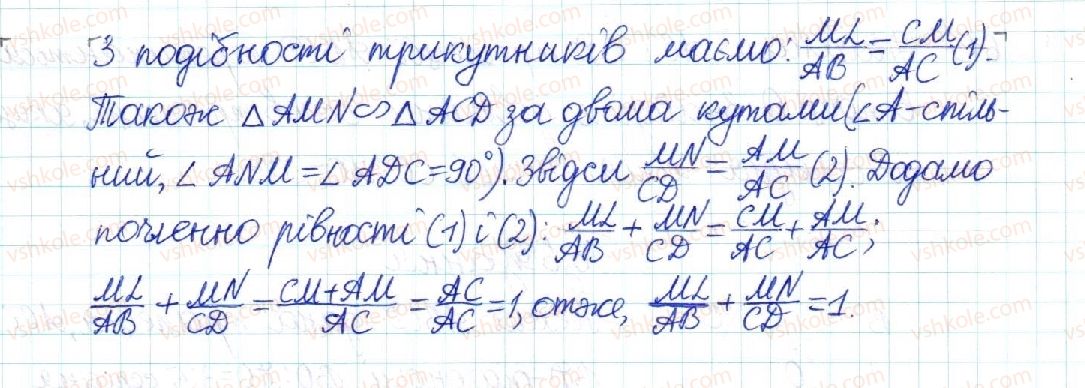 З подібності трикутників маємо: ML/AB = CM/AC (1).
Також △AMN ∽ △ACD за двома кутами (∠A - спіль-
ний, ∠ANM = ∠ADC = 90°). Звідси MN/CD = AM/AC (2). Додамо
почленно рівності (1) і (2): ML/AB + MN/CD = CM/AC + AM/AC;
ML/AB + MN/CD = CM + AM/AC = AC/AC = 1, отже, ML/AB + MN/CD = 1.